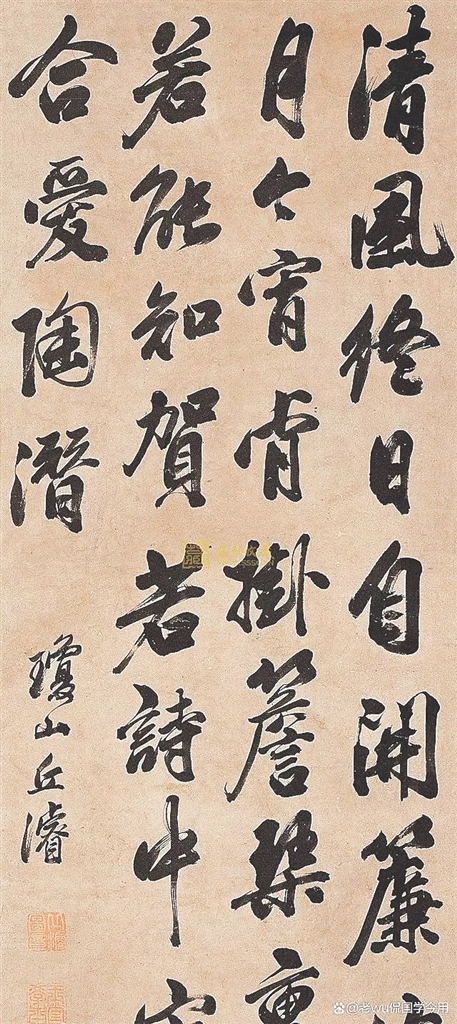 清風終日自開簾
月今宵肯掛簷琹
若能知賀若詩中
合愛陶潛
瓊山丘濬
@老wu侃国学今用